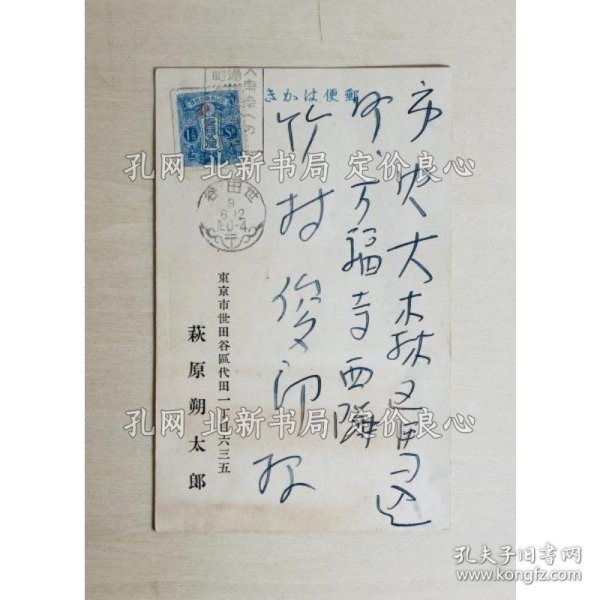 郵便はかき
市内大森区馬込
町、万福寺西隣
竹村俊郎様
東京市世田谷區代田一丁目六三五
萩原朔太郎
世田谷
9
6.12
孔网 北新书局 定价良心
孔网 北新书局 定价良心
孔网 北新书局 定价良心
孔夫子旧书网
www.kongfz.com